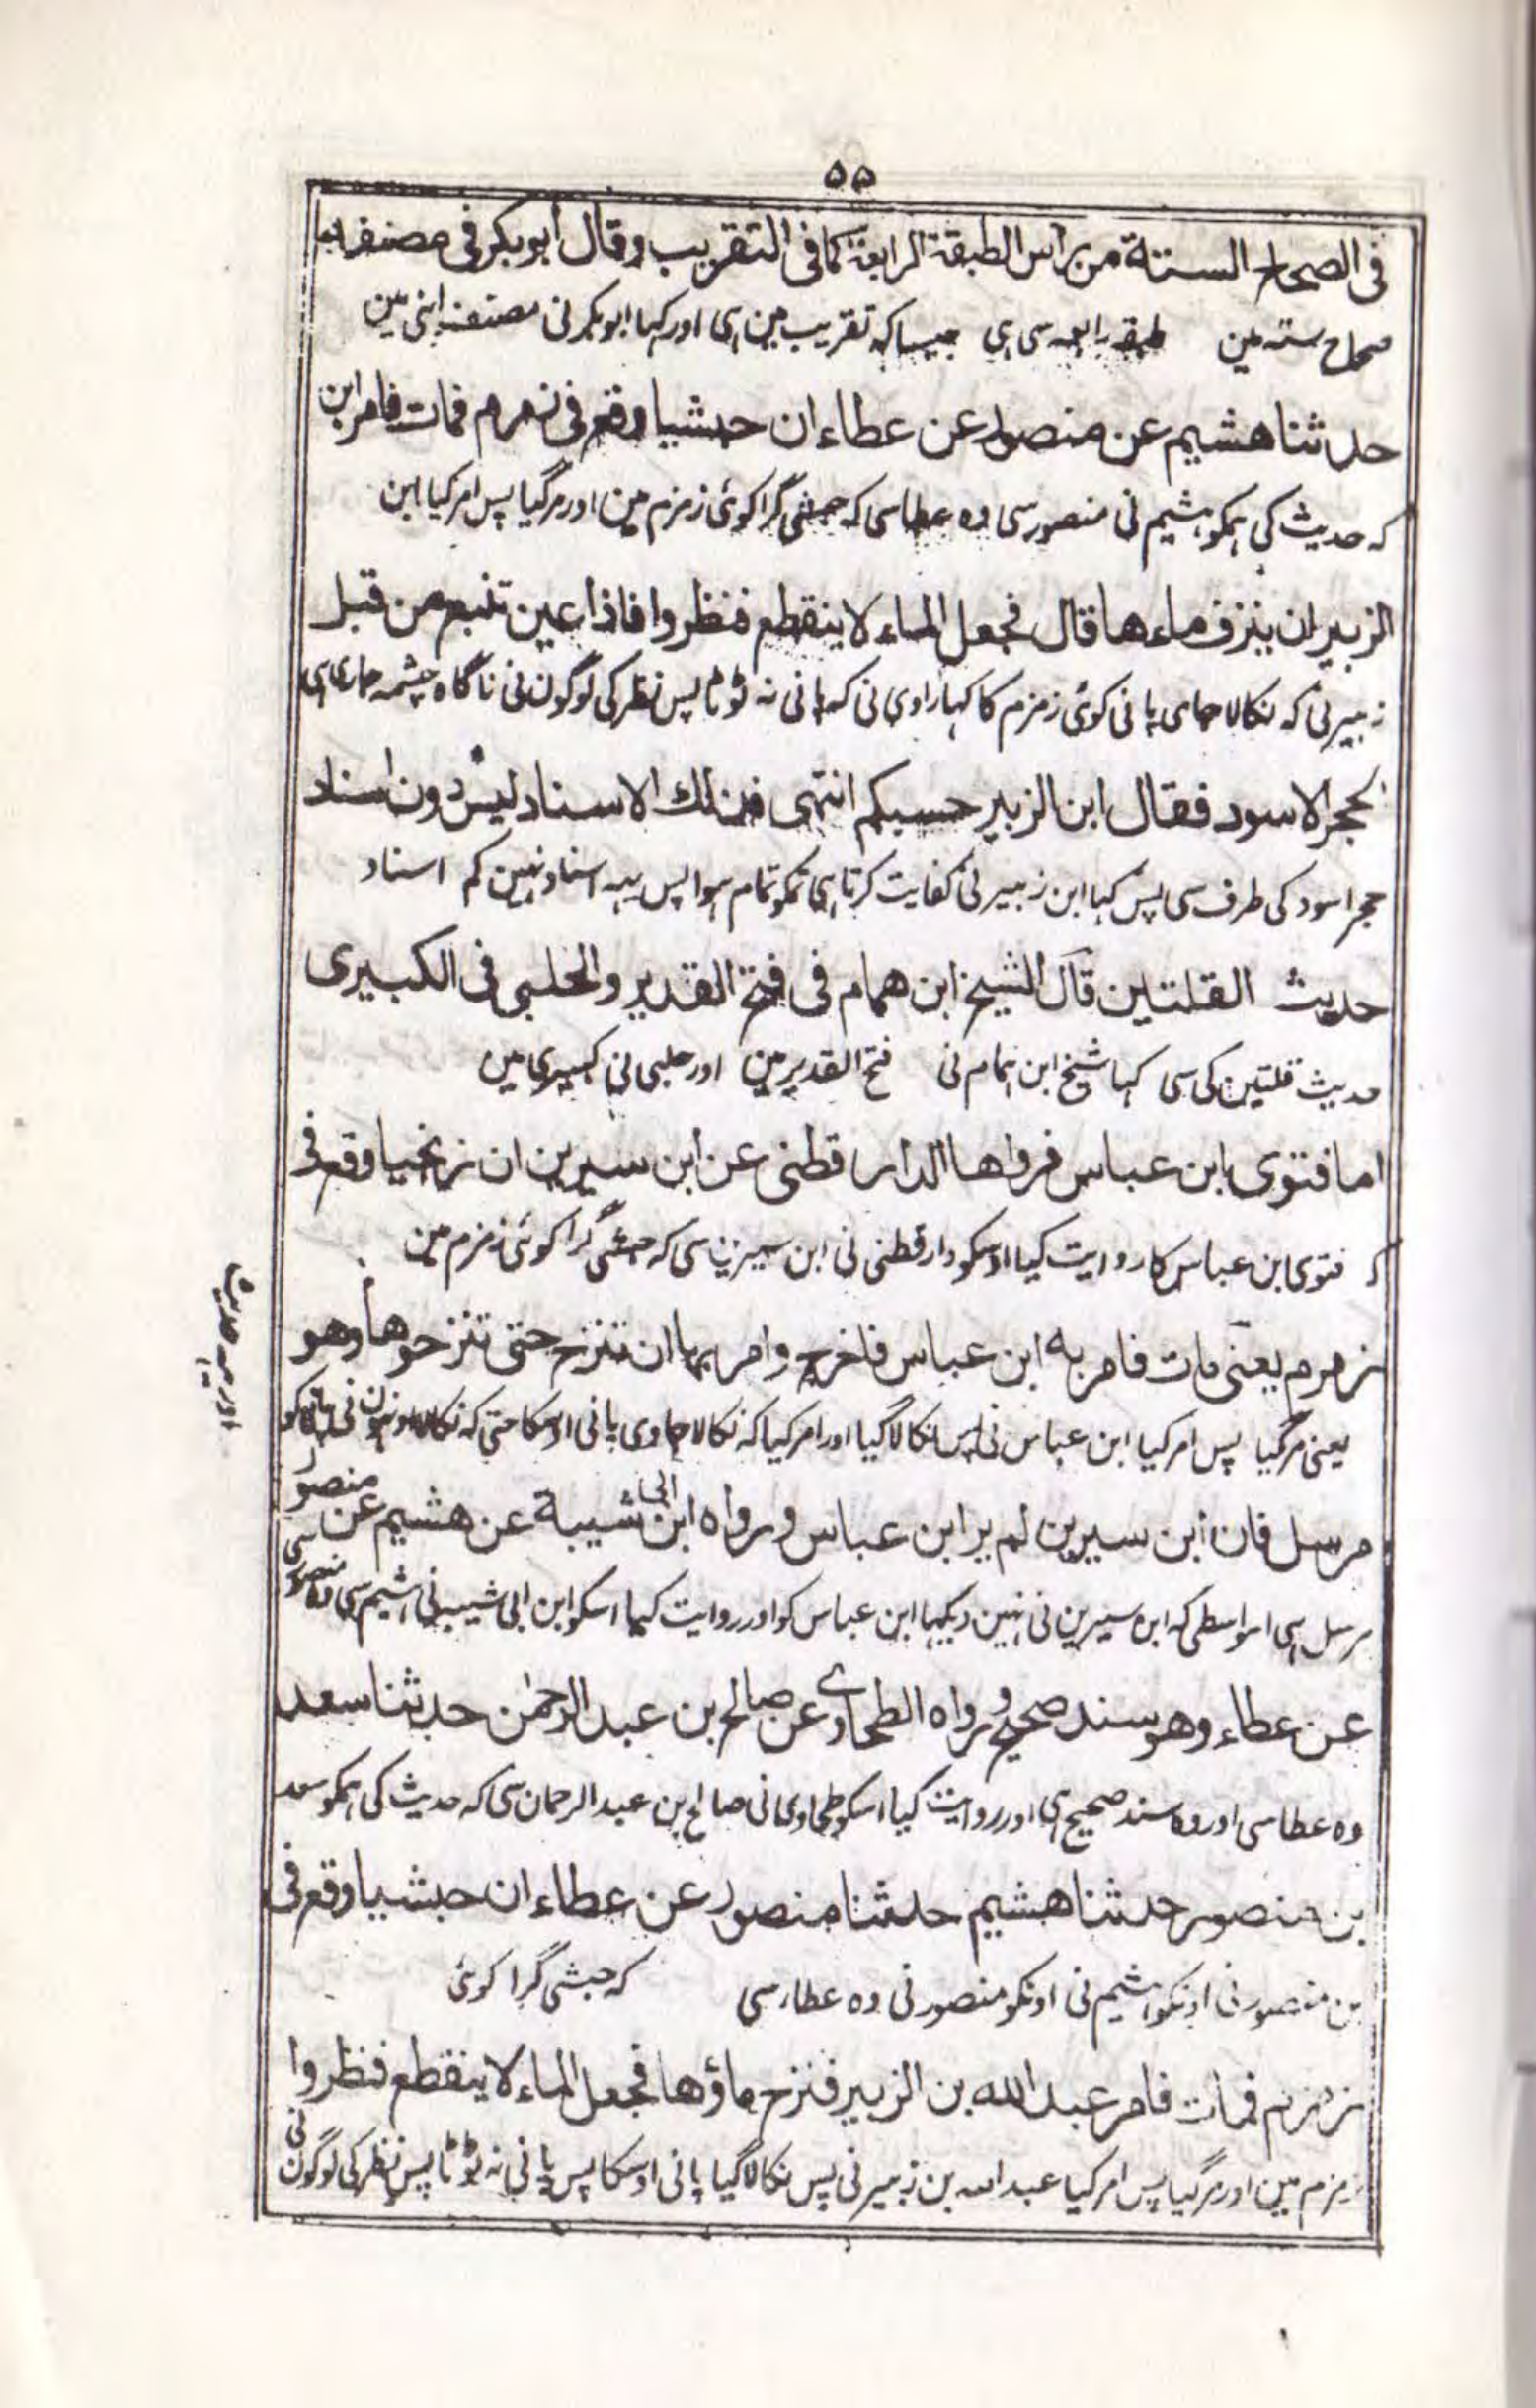 ۵۵
فی الصحاح الستة من رأس الطبقة الرابعة کما فی التقریب وقال ابوبکر فی مصنفه
صحاح سته مین طبقه رابعه سی ہی جیساکہ تقریب مین ہی اور کہا ابوبکر نی مصنف اپنی مین
حدثنا هشیم عن منصور عن عطاء ان حبشیا وقع فی زمزم فمات فامر ابن
کہ حدیث کی ہمکو ہشیم نی منصور سی وہ عطا سی کہ حبشی گرا کوئی زمزم مین اور مرگیا پس امر کیا ابن
الزبیر ان ینزف ماءها قال فجعل الماء لا ینقطع فنظروا فاذا عین تنبع من قبل
زبیر نی کہ نکالا جای پانی کوئی زمزم کا کہا راوی نی کہ پانی نہ ٹوٹا پس نظر کی لوگون نی ناگاہ چشمہ جاری ہی
الحجر الاسود فقال ابن الزبیر حسبکم انتهی فذلك الاسناد لیس دون اسناد
حجر اسود کی طرف سی پس کہا ابن زبیر نی کفایت کرتا ہی تمکو تمام ہوا پس یہہ اسناد نہین کم اسناد
حدیث القلتین قال الشیخ ابن همام فی فتح القدیر والحلبی فی الکبیری
حدیث قلتین کی سی کہا شیخ ابن ہمام نی فتح القدیر مین اور حلبی نی کبیری مین
اما فتوی ابن عباس فرواها الدارقطنی عن ابن سیرین ان زنجیا وقع فی
کہ فتوی ابن عباس کا روایت کیا اوسکو دارقطنی نی ابن سیرین سی کہ حبشی گرا کوئی زمزم مین
زمزم یعنی مات فامر به ابن عباس فاخرج وامر بها ان تنزح حتی تنزحوها وهو
یعنی مرگیا پس امر کیا ابن عباس نی پس نکالا گیا اور امر کیا کہ نکالا جاوی پانی اوسکا حتی کہ نکالا اونہون نی
مرسل فان ابن سیرین لم یر ابن عباس ورواه ابن ابی شیبة عن هشیم عن منصور
مرسل ہی اسواسطی کہ ابن سیرین نی نہین دیکہا ابن عباس کو اور روایت کیا اسکو ابن ابی شیبہ نی ہشیم سی وہ منصور سی
عن عطاء وهو سند صحیح ورواه الطحاوی عن صالح بن عبدالرحمن حدثنا سعد
وہ عطا سی اور وہ سند صحیح ہی اور روایت کیا اسکو طحاوی نی صالح بن عبدالرحمان سی کہ حدیث کی ہمکو سعد
بن منصور حدثنا هشیم حدثنا منصور عن عطاء ان حبشیا وقع فی
بن منصور نی اونکو ہشیم نی اونکو منصور نی وہ عطار سی کہ حبشی گرا کوئی
زمزم فمات فامر عبدالله بن الزبیر فنزح ماؤها فجعل الماء لا ینقطع فنظروا
زمزم مین اور مرگیا پس امر کیا عبداللہ بن زبیر نی پس نکالا گیا پانی اوسکا پس پانی نہ ٹوٹا پس نظر کی لوگون نی
اور یہ حدیث